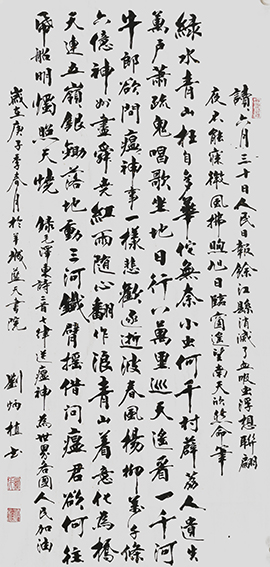 讀六月三十日人民日報餘江縣消滅了血吸虫浮想聯翩
夜不能寐微風拂煦旭日臨窗遥望南天欣然命筆
緑水青山枉自多華佗無奈小虫何千村薜荔人遺矢
萬户蕭疏鬼唱歌坐地日行八萬里巡天遥看一千河
牛郎欲問瘟神事一樣悲歡逐逝波春風楊柳萬千條
六億神州盡舜堯紅雨随心翻作浪青山着意化為橋
天連五嶺銀鋤落地動三河鐵臂摇借問瘟君欲何往
紙船明燭照天燒 録毛澤東詩二首七律送瘟神 為世界各國人民加油
歲在庚子季春月於羊城藍天書院 劉炳植書